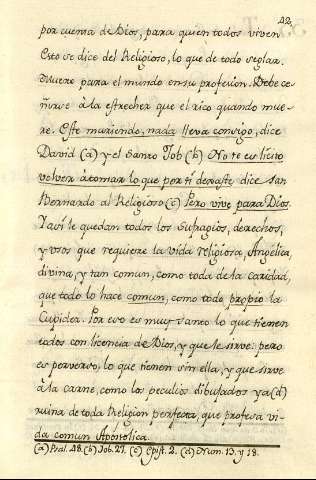 42
por cuenta de Dios, para quien todos viven
Esto se dice del Religioso, lo que de todo seglar.
Muere para el mundo en su profesion. Debe ce-
ñirse à la estrechez que el rico quando mue-
re. Este muriendo, nada lleva consigo, dice
David (a) y el Santo Job (b) No te es licito
volver à tomar lo que por tì dexaste dice san
Bernardo al Religioso (c) Pero vive para Dios.
Y asì te quedan todos los sufragios, derechos,
y usos que requiere la vida religiosa, Angelica,
divina, y tan comun, como toda de la caridad,
que todo lo hace comun, como todo propio la
Cupidez. Por eso es muy santo lo que tienen
todos con licencia de Dios, y que le sirve: pero
es perverso, lo que tienen sin ella, y que sirve
à la carne, como los peculios dibujados ya (d)
ruina de toda Religion perfecta, que profesa vi-
da comun Apostolica.
(a) Psal. 48. (b) Job. 27. (c) Epist. 2. (d) Num. 13. y 18.